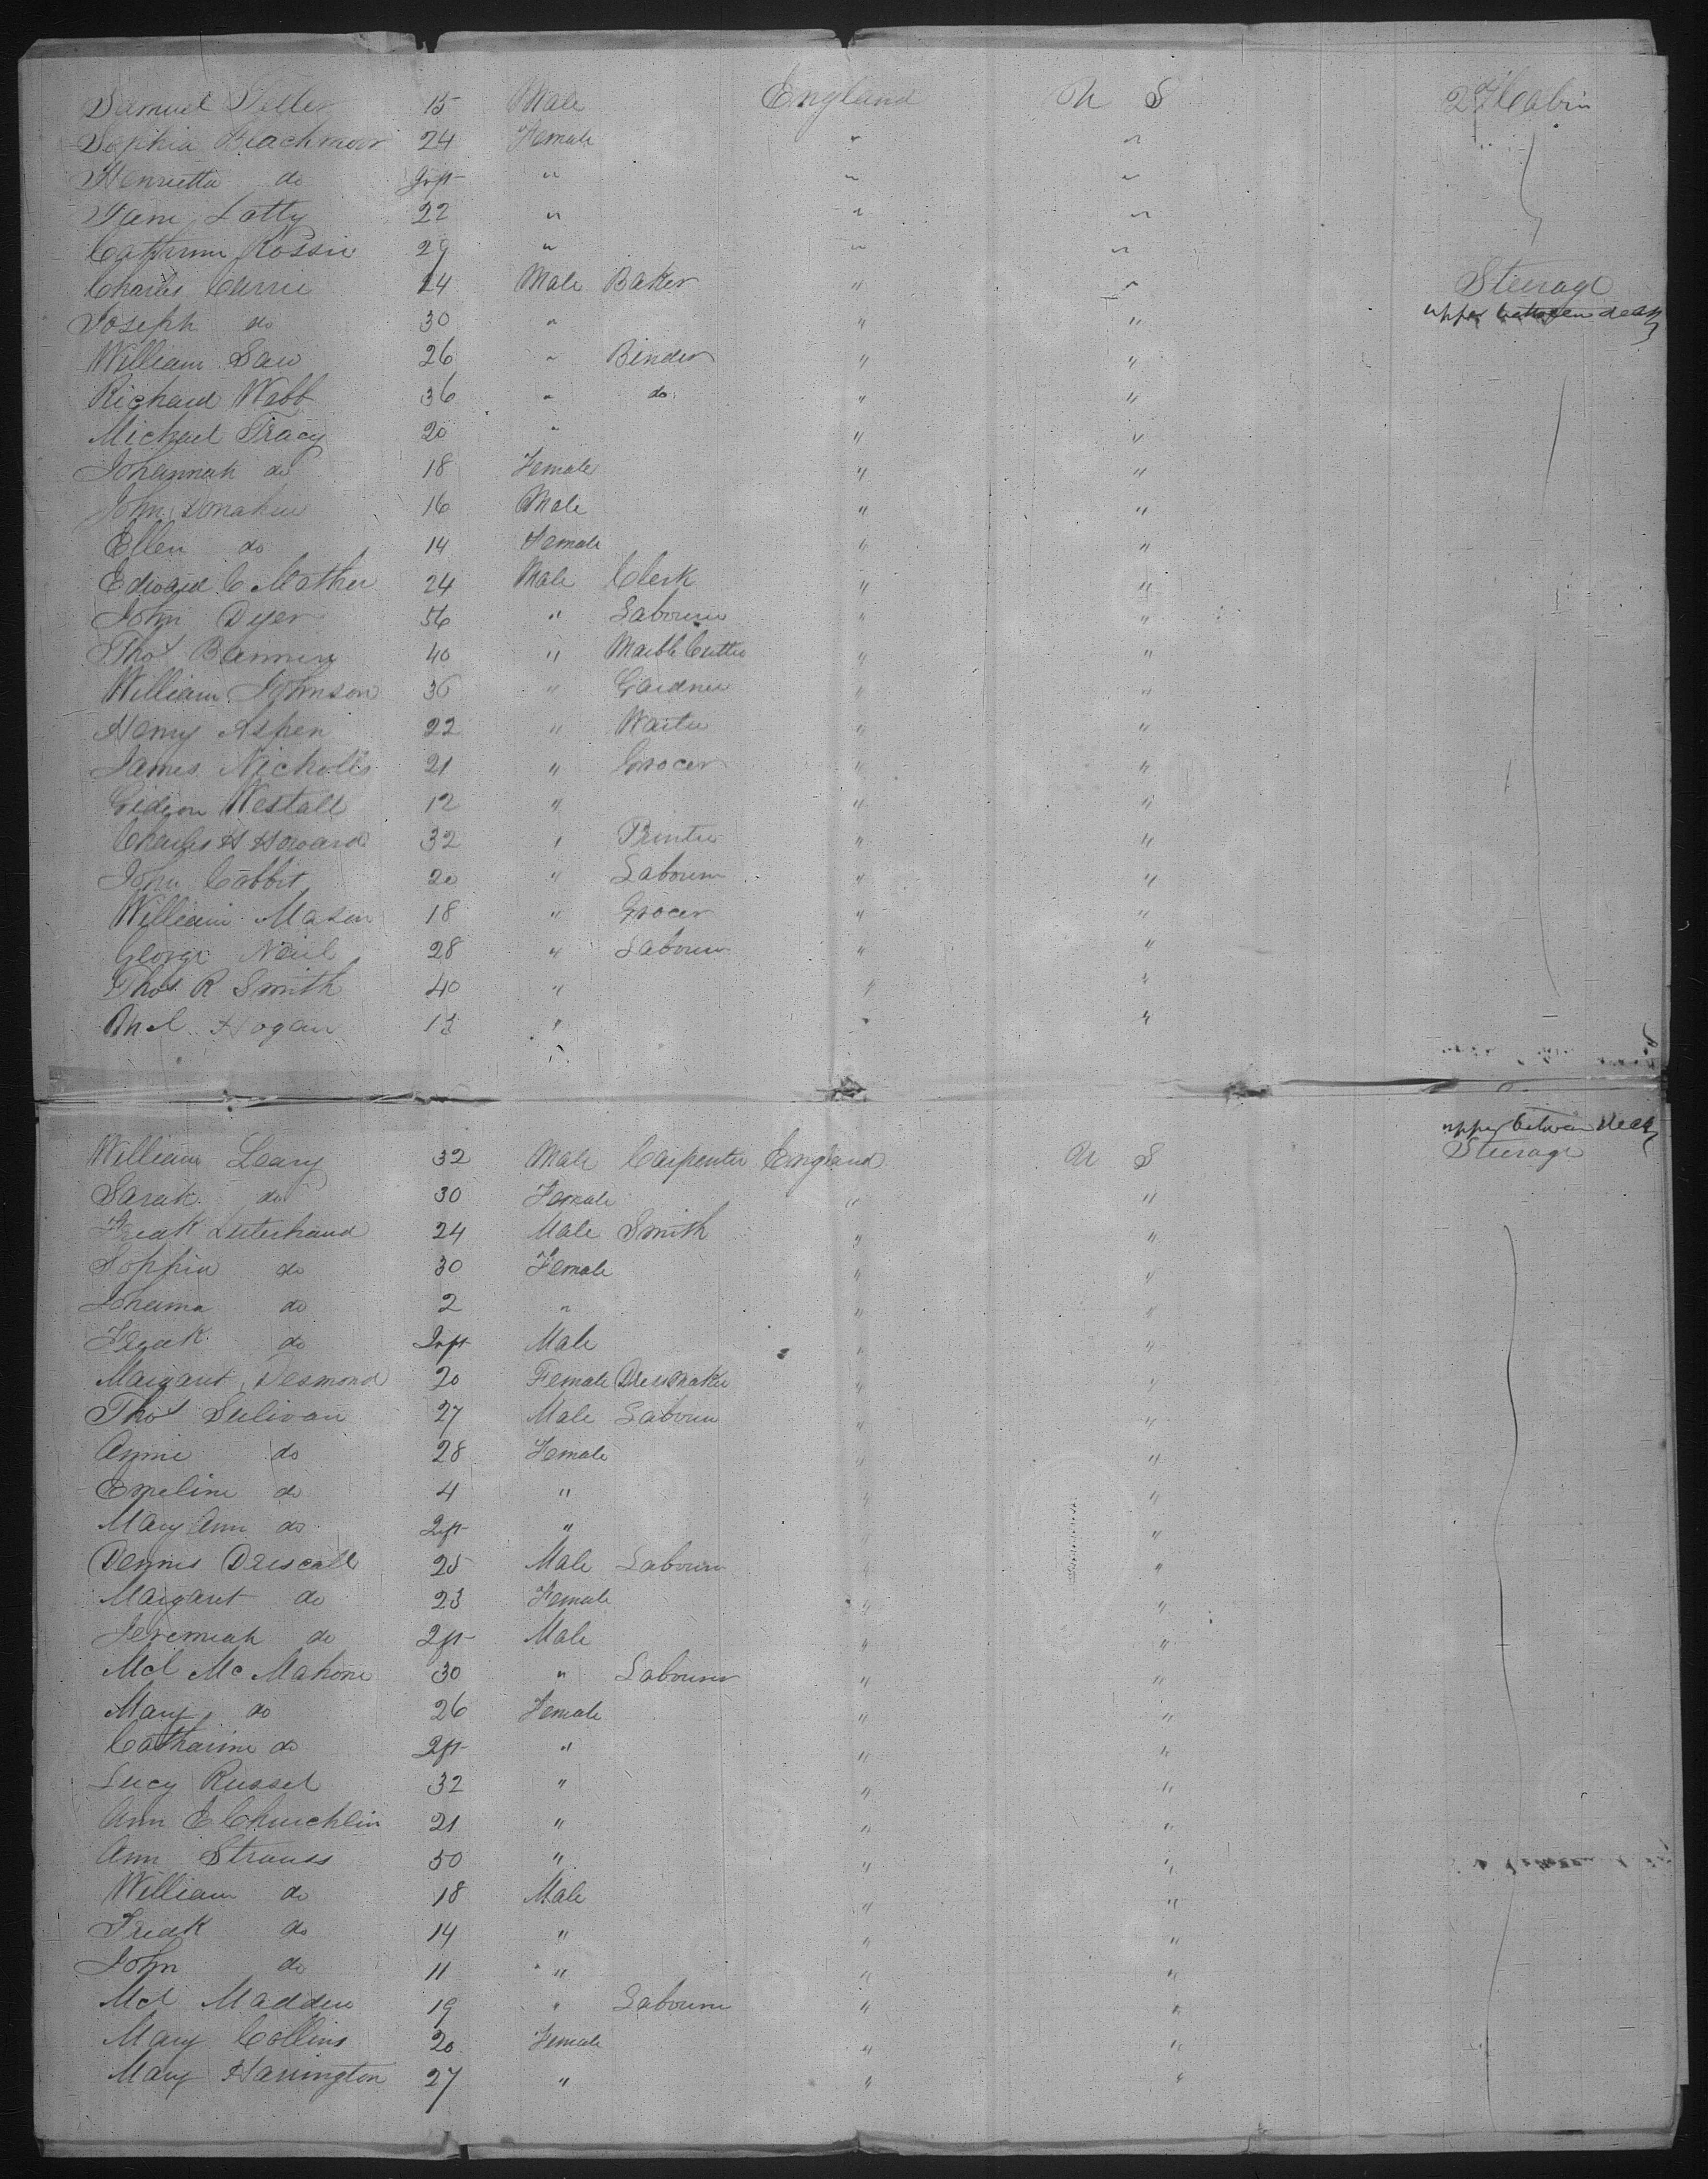 Samuel Teller 15 Male England U S 2d Cabin
Sophia Blachmoor 24 Female " "
Henrietta do Inft " " "
Jane Latty 22 " " "
Catherine Rossie 29 " " "
Charles Currie 24 Male Baker " " Steerage
Joseph do 30 " " " upper between decks
William Saw 26 " Binder " "
Richard Webb 36 " do " "
Michael Tracy 20 " " "
Johannah do 18 Female " "
John Donahue 16 Male " "
Ellen do 14 Female " "
Edward C Mather 24 Male Clerk " "
John Dyer 56 " Labourer " "
Thos 40 " Marble Cutter " "
William Johnson 36 " Gardner " "
Henry Aspen 22 " Waiter " "
James Nicholls 21 " Grocer " "
Gideon Westall 12 " " "
Charles H Howard 32 " Printer " "
John Cobbit 20 " Labourer " "
William Mason 18 " Grocer " "
George Neil 28 " Labourer " "
Thos R Smith 40 " " "
Mcl Hogan 13 " " "
upper between decks
William Leary 32 Male Carpenter England U S Steerage
Sarah do 30 Female " "
Fredk 24 Male Smith " "
Sophia do 30 Female " "
do 2 " " "
Fredk do Inft Male " "
Margaret Desmond 20 Female Dressmaker " "
Thos Sulivan 27 Male Labourer " "
Annie do 28 Female " "
Emeline do 4 " " "
Mary Ann do Inft " " "
Dennis Driscall 25 Male Labourer " "
Margaret do 23 Female " "
Jeremiah do Inft Male " "
Mcl Mc Mahone 30 " Labourer " "
Mary do 26 Female " "
Catharine do Inft " " "
Lucy Russel 32 " " "
Ann E Churchlin 21 " " "
Ann Strauss 50 " " "
William do 18 Male " "
Fredk do 14 " " "
John do 11 " " "
Mcl Madden 19 " Labourer " "
Mary Collins 20 Female " "
Mary Harrington 27 " " "